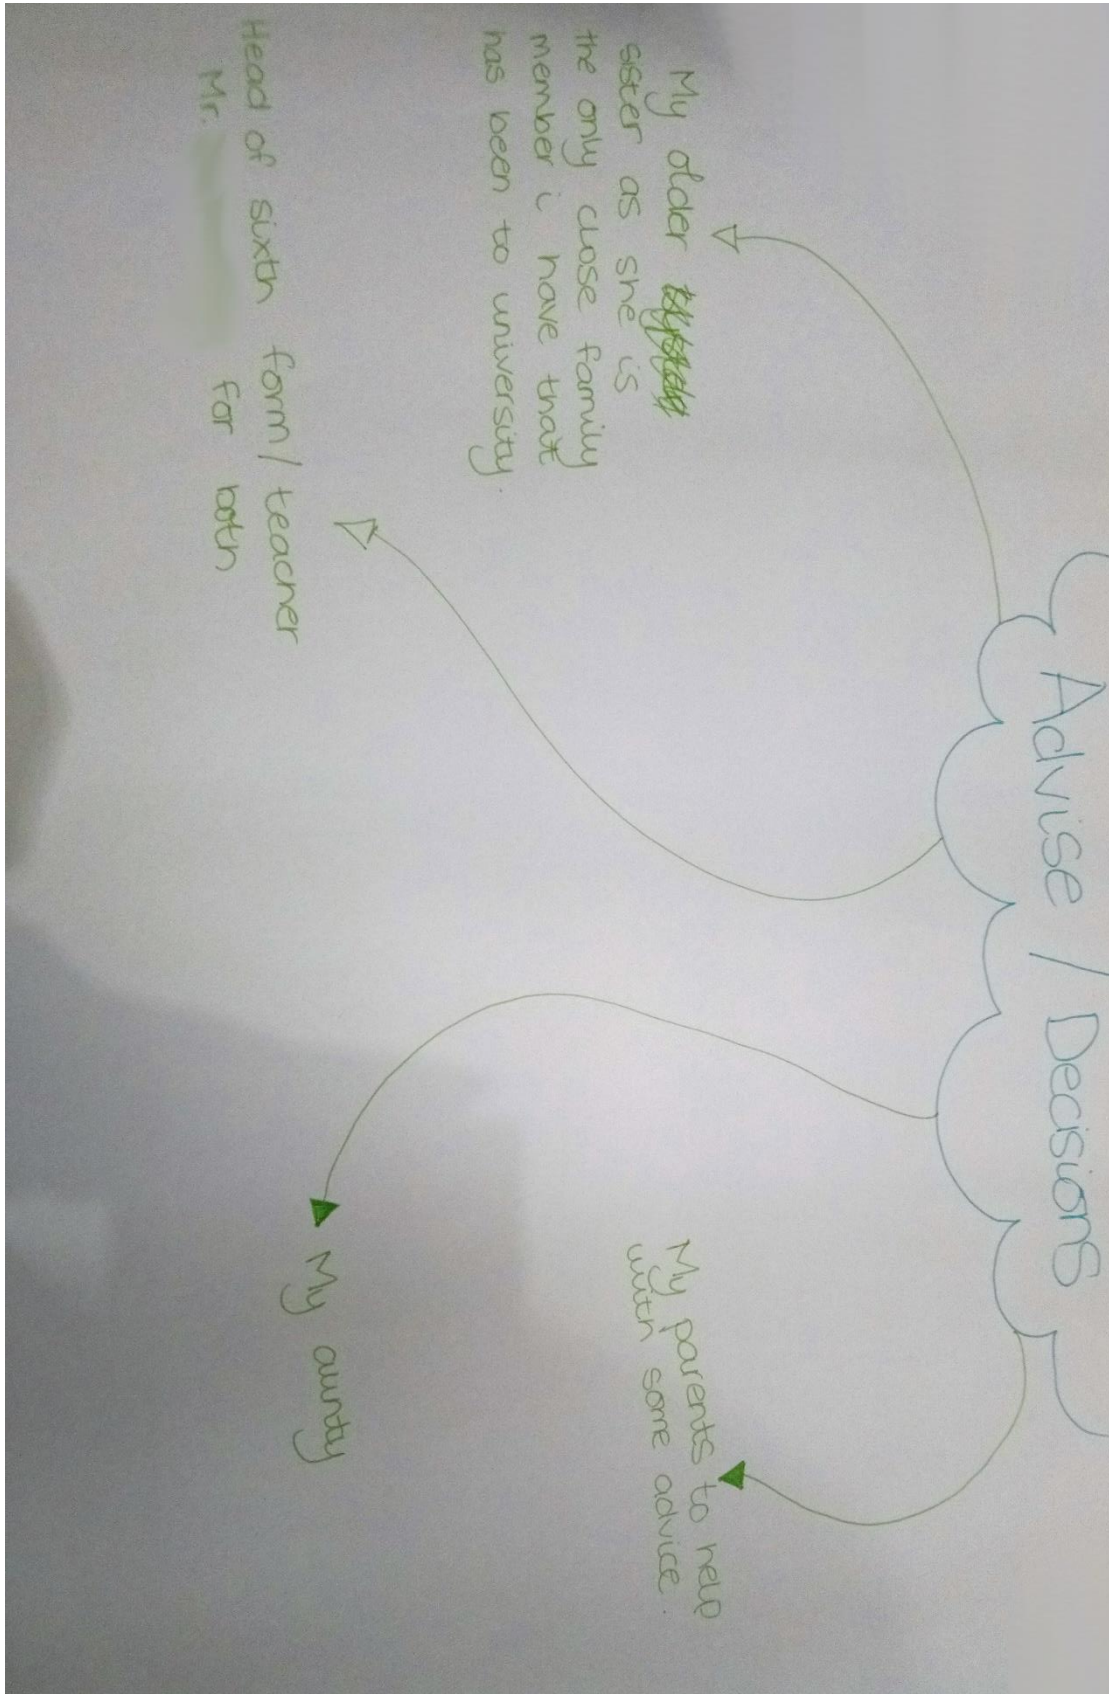 Advise / Decisions
My older
sister as she is
the only close family
member i have that
has been to university.
Head of sixth form / teacher
Mr. for both
My aunty
My parents to help
with some advice.